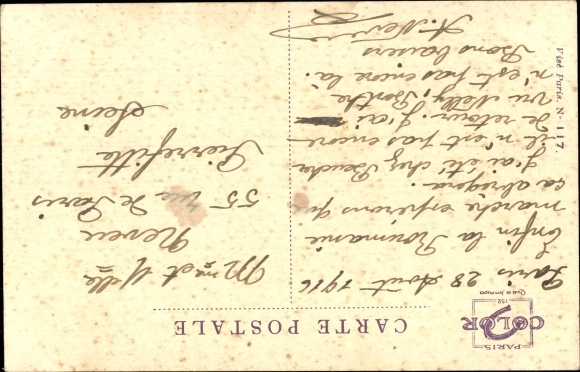 CARTE POSTALE
PARIS
COLOR
152
Quai de Jemmapes
Visé Paris. N° 117.
Paris 28 Août 1916
Enfin la Roumanie
marche espérons que
ça abrègera.
J'ai été chez
il n'est pas encore
de retour. J'ai
vu Nelly, Berthe
n'est pas encore là.
Bons baisers
Mme et Melle
Neveu
55 rue de Paris
Pierrefitte
Seine